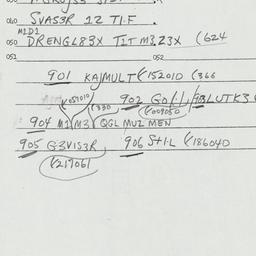 040 SVAS3R 12 TIF.
M1D1
050 DRENGL83X TITM3,23X (624
052 052
901 KAJMULT (152010 (366
(051010 (330 902 GO/·/·/ 903 LUTK3
(009050
904 M1 M3 QGL MUZ MEN
905 G3VIS3R 906 S+I·L (186040
(217061